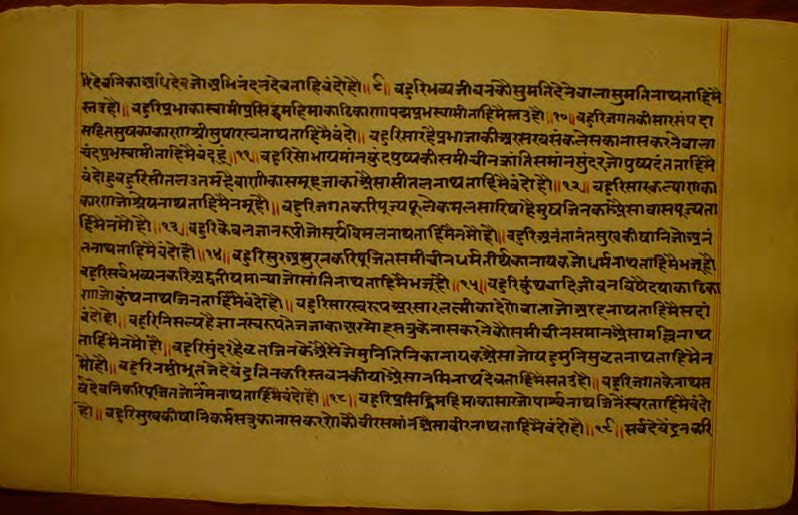 रिदेवनिका अधिदेव जो अभिनंदनदेव ताहि बंदो हौ॥ ९॥ बहुरि भव्यजीवनकौ सुमति देनेवाला सुमतिनाथ ताहि मै
स्तउ हौ॥ बहुरि प्रभाका स्वामी प्रसिद्ध महिमाका ढिकारण पद्मप्रभस्वामी ताहि मै स्तउ हौ॥ १०॥ बहुरि जगतकी सार संपदा
सहित सुषका कारण श्री सुपारस्वनाथ ताहि मै बंदो॥ बहुरि सार है प्रभा जाकी अर सरव संकलेसका नास करनेवाला
चंद्रप्रभस्वामी ताहि मै बंदहू॥ ११॥ बहुरि सोभायमांन कुंदपुष्पकी समीचीन क्रांति समांन सुंदर जो पुष्पदंत ताहि मै
बंदो हु बहुरि सीतल उतम है वाणीका समूह जाका अैसा सीतलनाथ ताहि मै बंदो हौ॥ १२॥ बहुरि सारकल्याणका
कारण जो श्रेयनाथ ताहि मै नमू हौ॥ बहुरि जगत करि पूज्य फूले कमल सारिषा है मुष जिनका अैसा वासपूज्य ता
हि मै नमौ हौ॥ १३॥ बहुरि केवलज्ञानरूपी जो सूर्य विमलनाथ ताहि मै नमौ हौ॥ बहुरि अनंतानंत सुखकी षानि जो अनं
तनाथ ताहि मै बंदो हौ॥ १४॥ बहुरि सुर असुरन करि पूजित समीचीन धर्मतीर्थका नायक जो धर्मनाथ ताहि मै भजू हौ
बहुरि सर्व भव्यन करि अद्वतीय मान्या जो सांतिनाथ ताहि मै भजू हौ॥ १५॥ बहुरि कुंथवादि जीवन विषै दयाका ढिका
रण जो कुंथनाथ जिन ताहि मै बंदो हौ॥ बहुरि सारस्वरूप अर सार लक्ष्मीका देणेवाला जो अरहनाथ ताहि मै सदां
बंदो हौ॥ बहुरि निसल्य है ज्ञानस्वरूप तेज जाका अर मोह सत्रुके नास करनेकौ समीचीन समान अैसा मल्लिनाथ
ताहि मै नमौ हौ॥ बहुरि सुंदर है व्रत जिनके अैसे जे मुनि तिनिका नायक अैसा जो यह मुनिसुव्रतनाथ ताहि मै न
मौ हौ॥ बहुरि नम्रीभूत जे देवेंद्र तिन करि स्तवन कीया अैसा नमिनाथदेव ताहि मै स्तउ हौ॥ बहुरि जगतके नाथ स
र्वदेवनि करि पूजित जो नेमनाथ ताहि मै बंदो हौ॥ १८॥ बहुरि प्रसिद्धि महिमाका सार जो पार्श्वनाथ जिनेस्वर ताहि मै बंदो
हौ॥ बहुरि सुखकी षानि कर्मसत्रुका नास करणेकौ वीर समांन अैसा वीरनाथ ताहि मै बंदो हौ॥ १९॥ सर्व देवेंद्रन करि